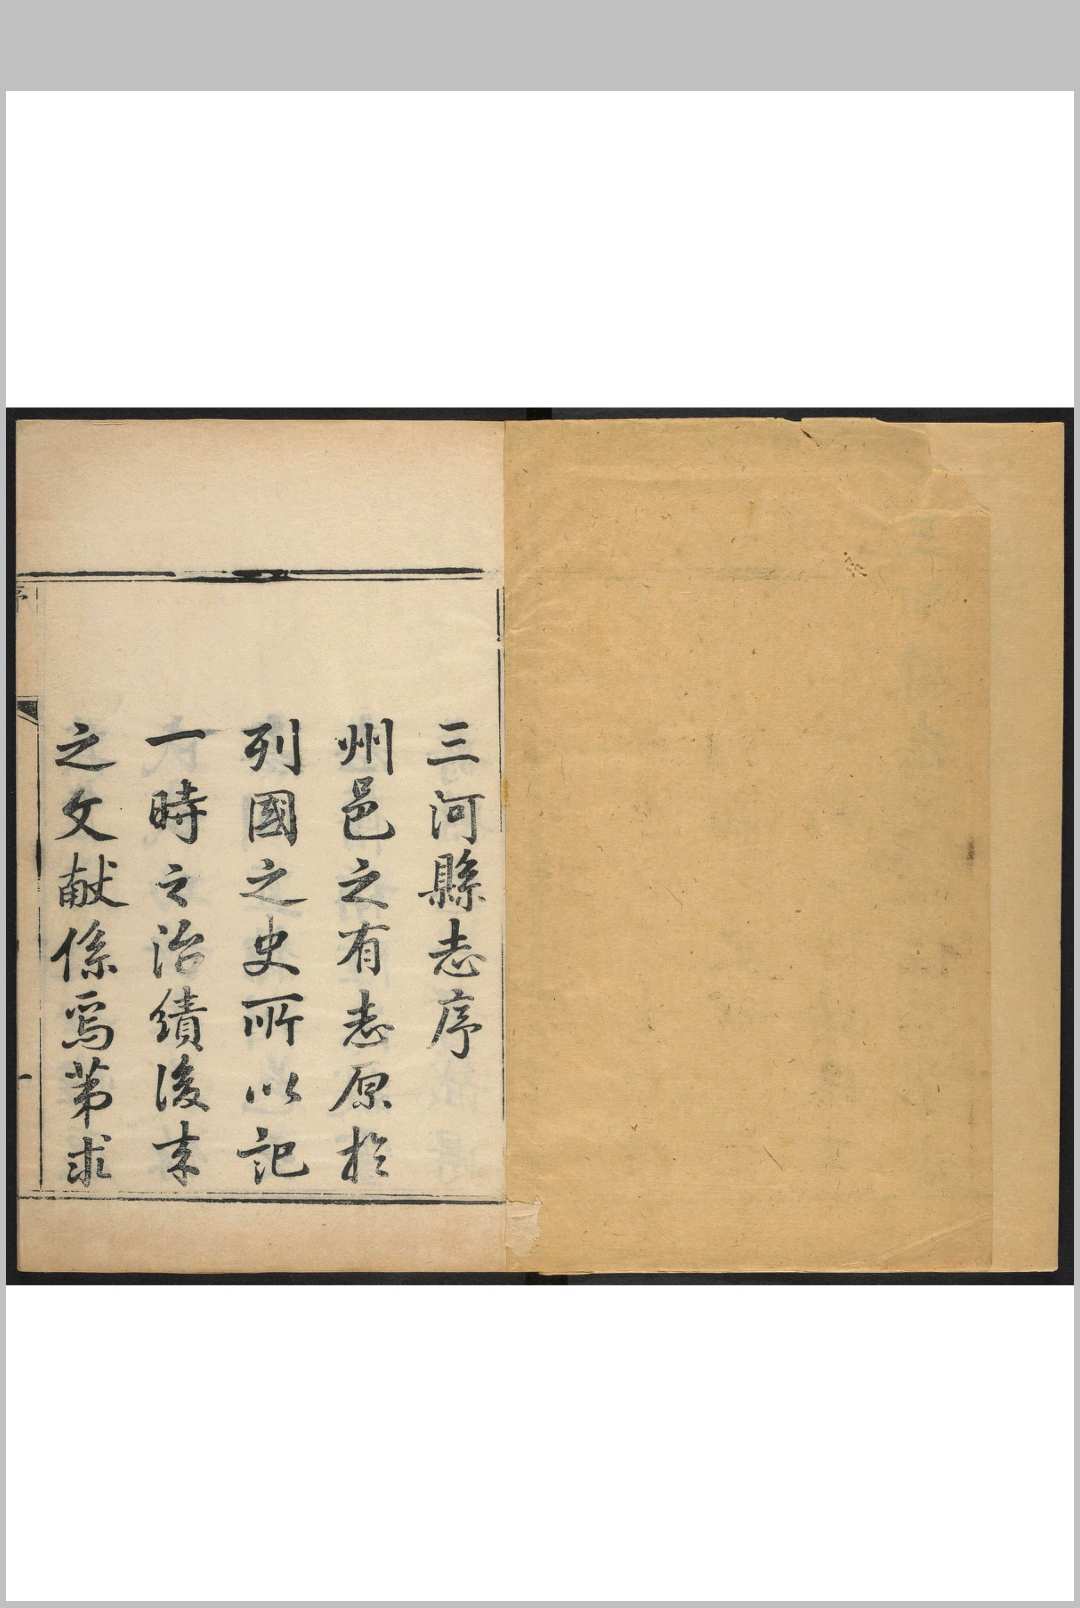 三河縣志序
州邑之有志原於
列國之史所以記
一時之治績後来
之文献係焉第求
序